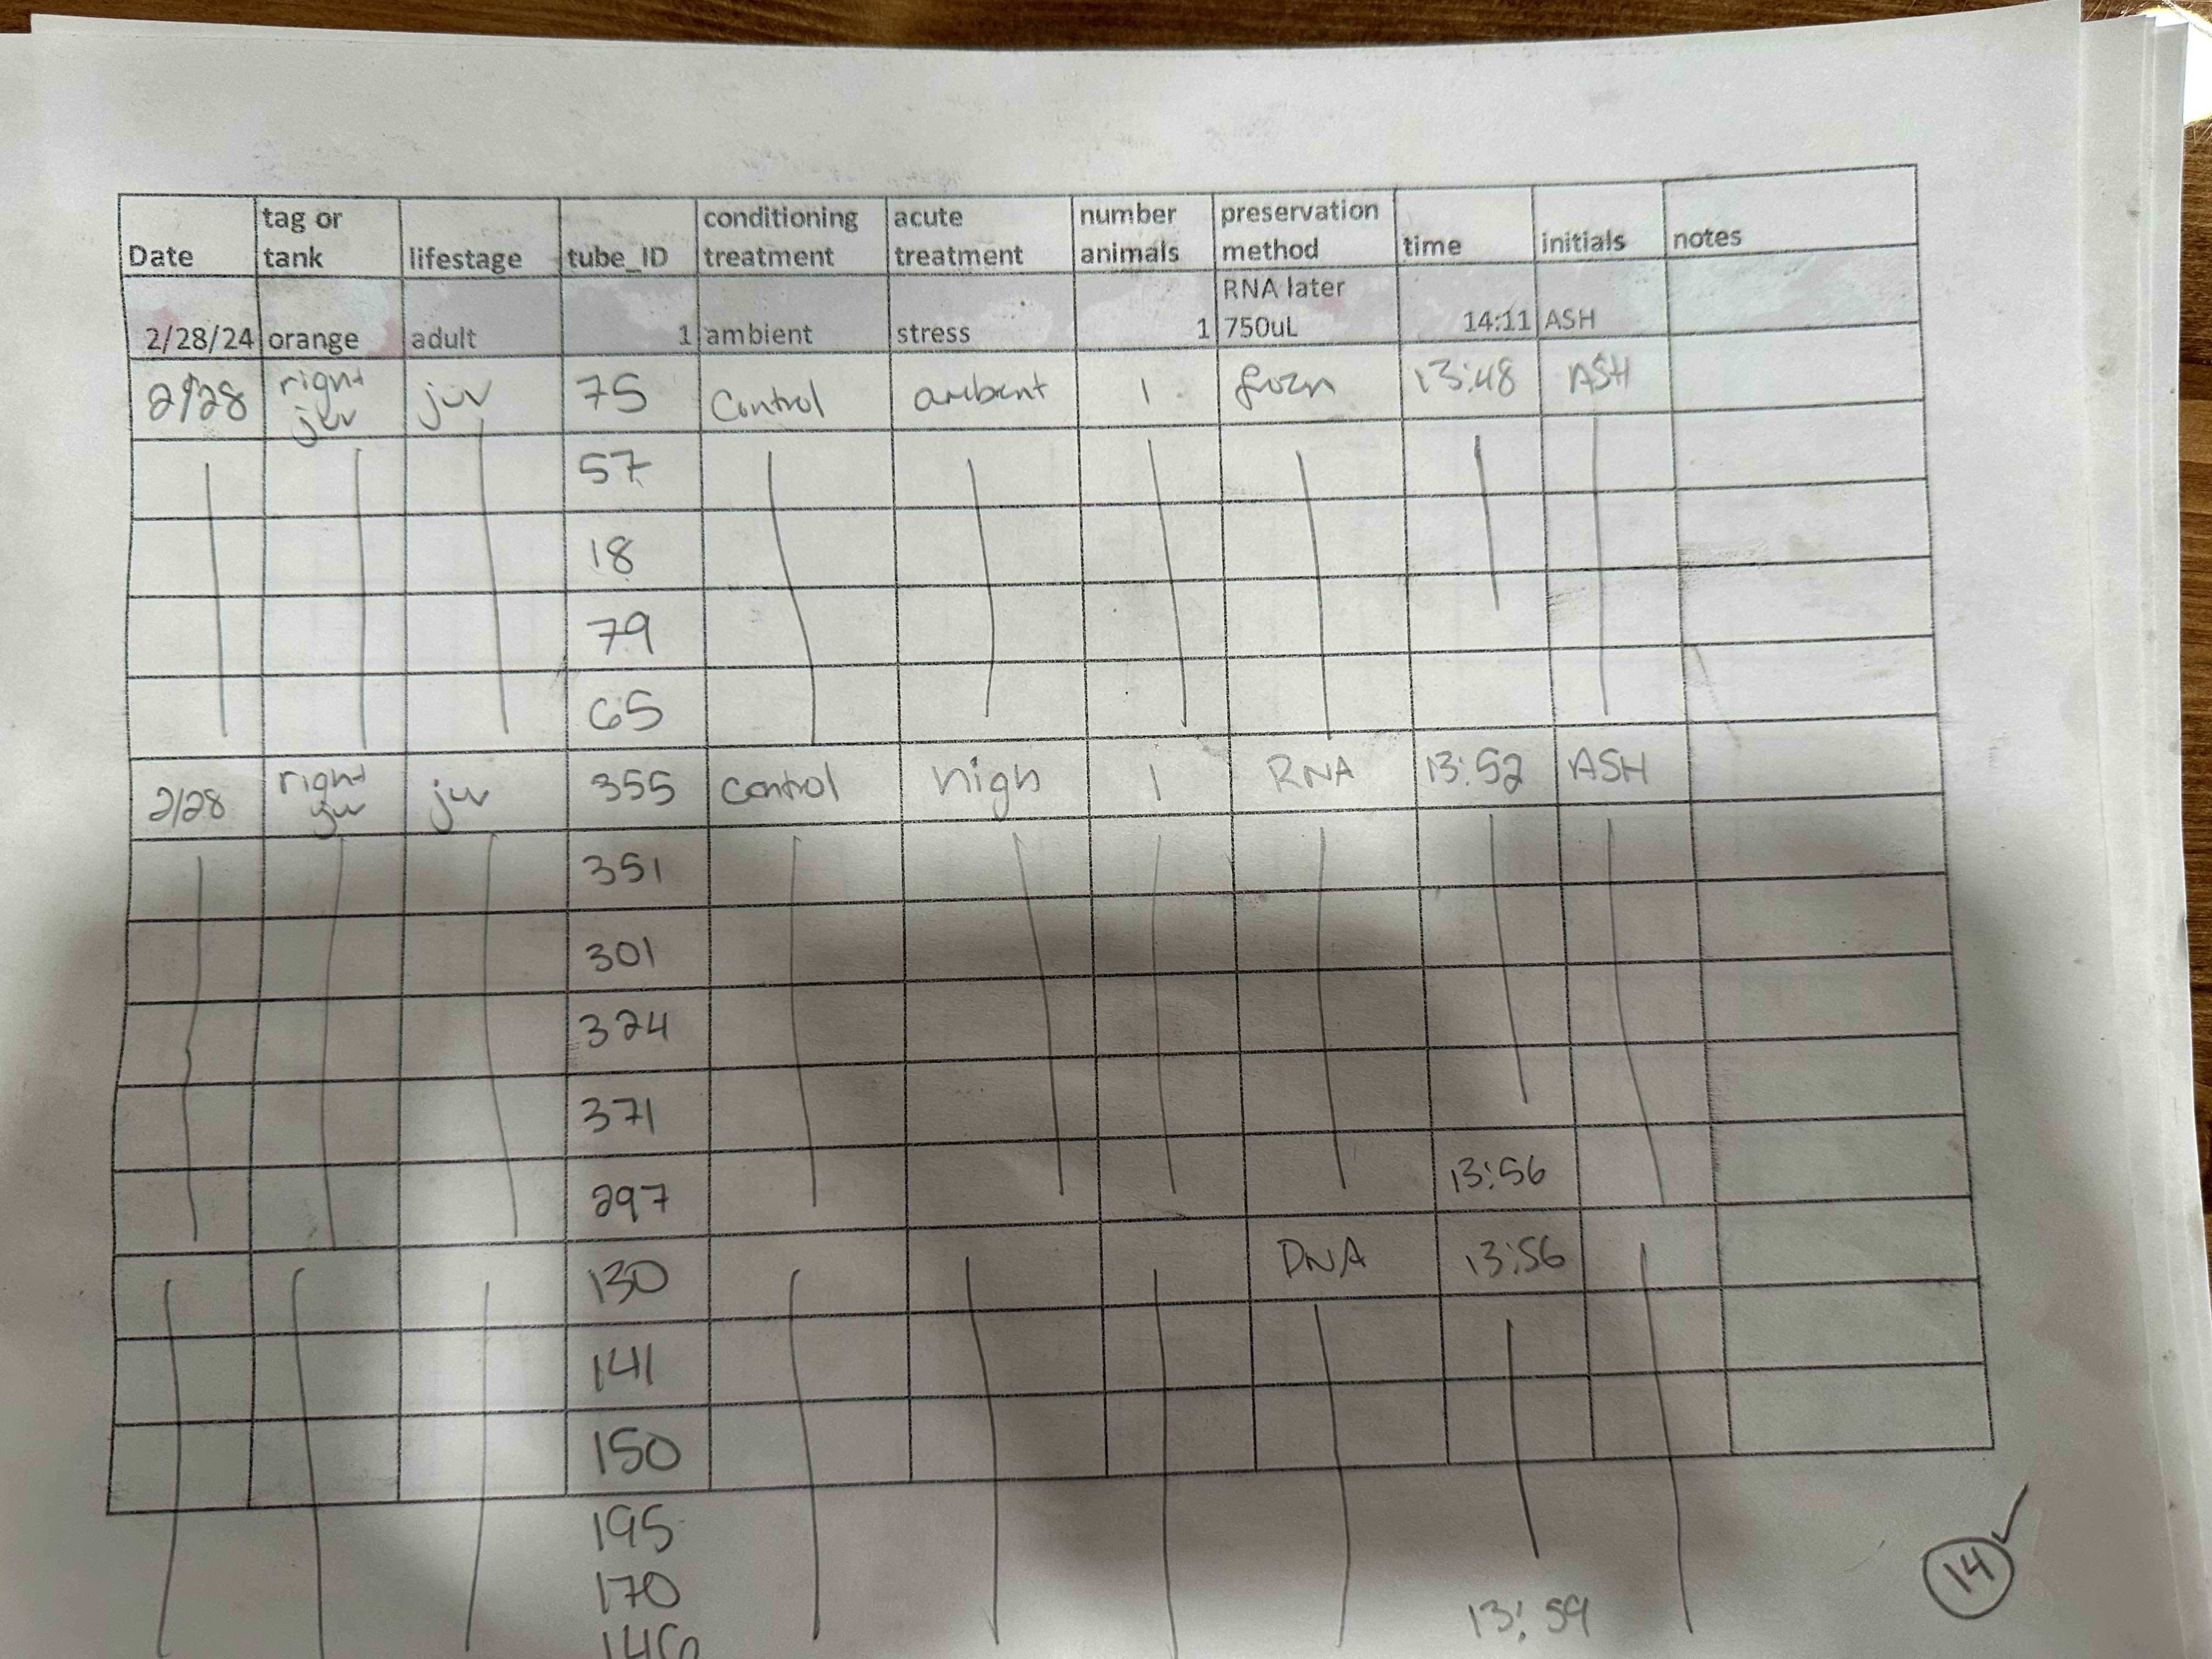 Date tag or tank lifestage tube_ID conditioning treatment acute treatment number animals preservation method time initials notes
2/28/24 orange adult 1 ambient stress 1 RNA later 750uL 14:11 ASH
2/28 right juv juv 75 Control ambient 1 frozen 13:48 ASH
57
18
79
65
2/28 right juv juv 355 Control high 1 RNA 13:52 ASH
351
301
374
371
297 13:56
130 DNA 13:56
141
150
195
170
146 13:59
14